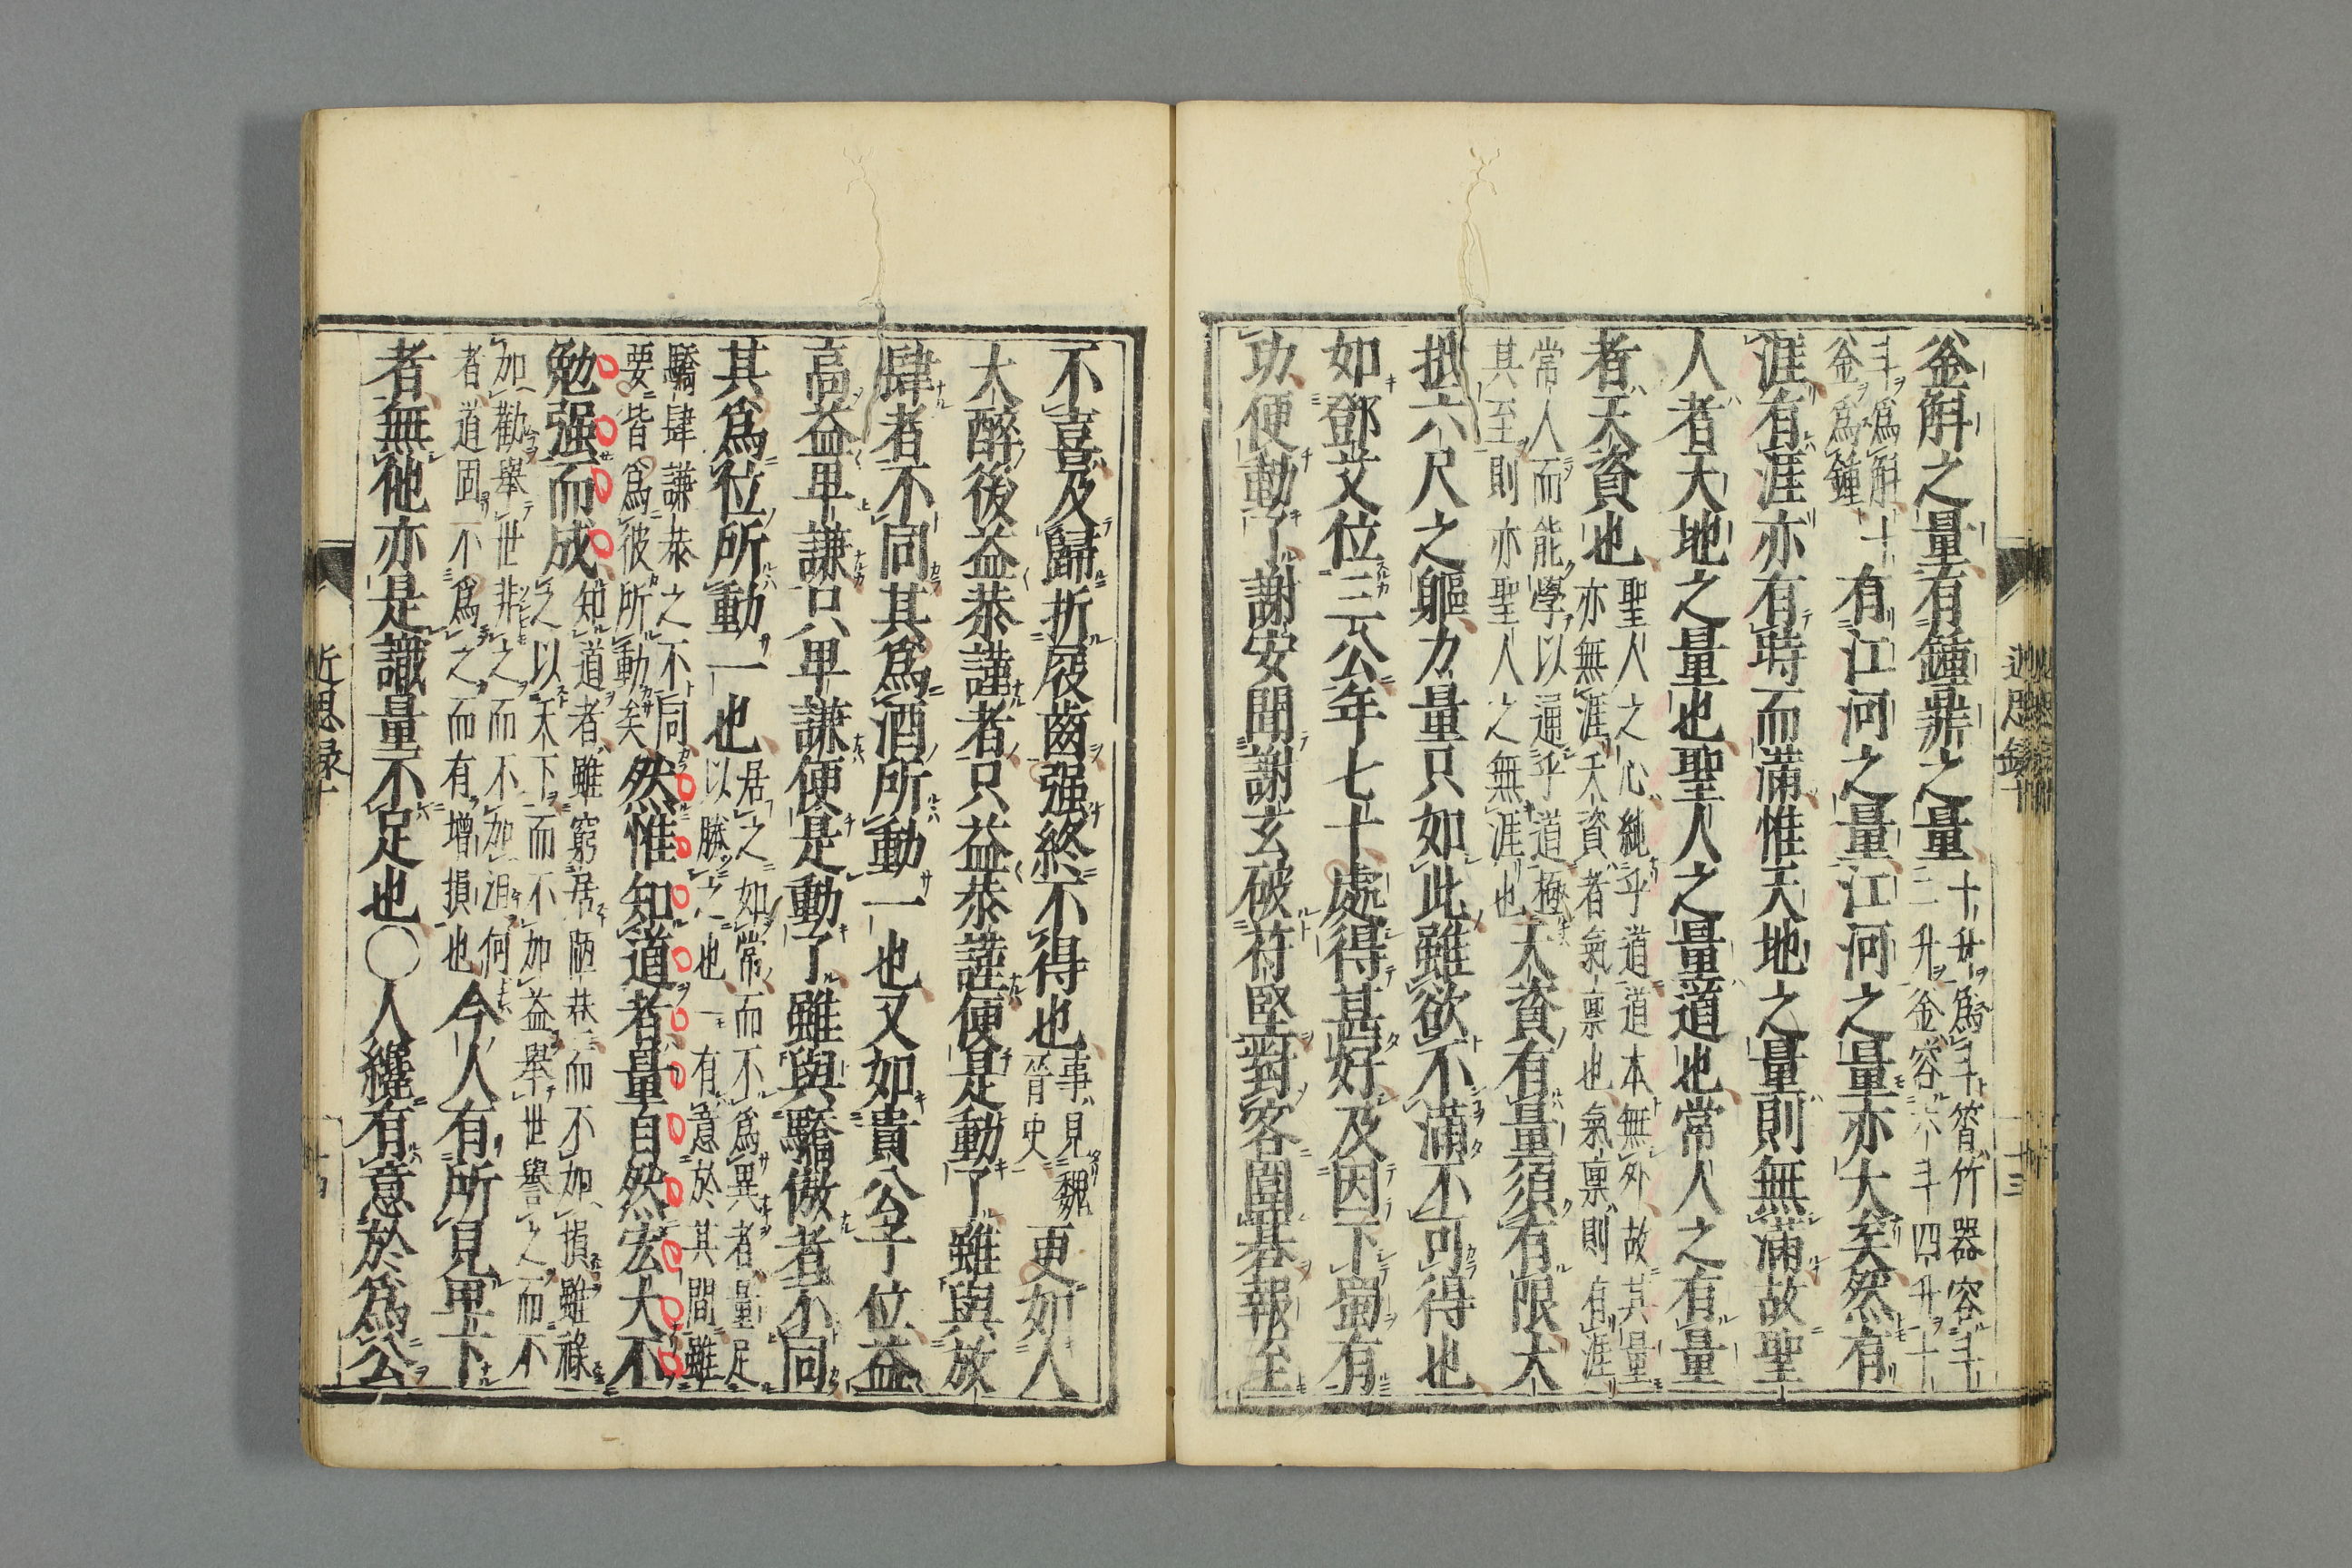 釜斛之量有鍾鼎之量十升爲斗筲竹器容斗二升釜容六斗四升十
斗爲斛十釜爲鍾有江河之量江河之量亦大矣然有
涯有涯亦有時而滿惟天地之量則無滿故聖
人者天地之量也聖人之量道也常人之有量
者天資也聖人之心純乎道道本無外故其量亦無涯天資者氣禀也氣禀則有涯
常人而能學以通乎道極其至則亦聖人之無涯也天資有量須有限大
抵六尺之軀力量只如此雖欲不滿不可得也
如鄧艾位三公年七十處得甚好及因下蜀有
功便動了謝安聞謝玄破苻堅對客圍碁報至
近思錄十
十三
不喜及歸折屐齒强終不得也事見魏晉史更如人
大醉後益恭謹者只益恭謹便是動了雖與放
肆者不同其爲酒所動一也又如貴公子位益
高益卑謙只卑謙便是動了雖與驕傲者不同
其爲位所動一也居之如常而不爲異者量足以勝之也一有意於其間雖
驕肆謙恭之不同要皆爲彼所動矣然惟知道者量自然宏大不
勉强而成知道者雖窮居陋巷而不加損雖祿之以天下而不加益舉世譽之而不
加勸舉世非之而不加沮何者道固不爲之而有增損也今人有所見卑下
者無他亦是識量不足也〇人纔有意於爲公
近思錄十
十四